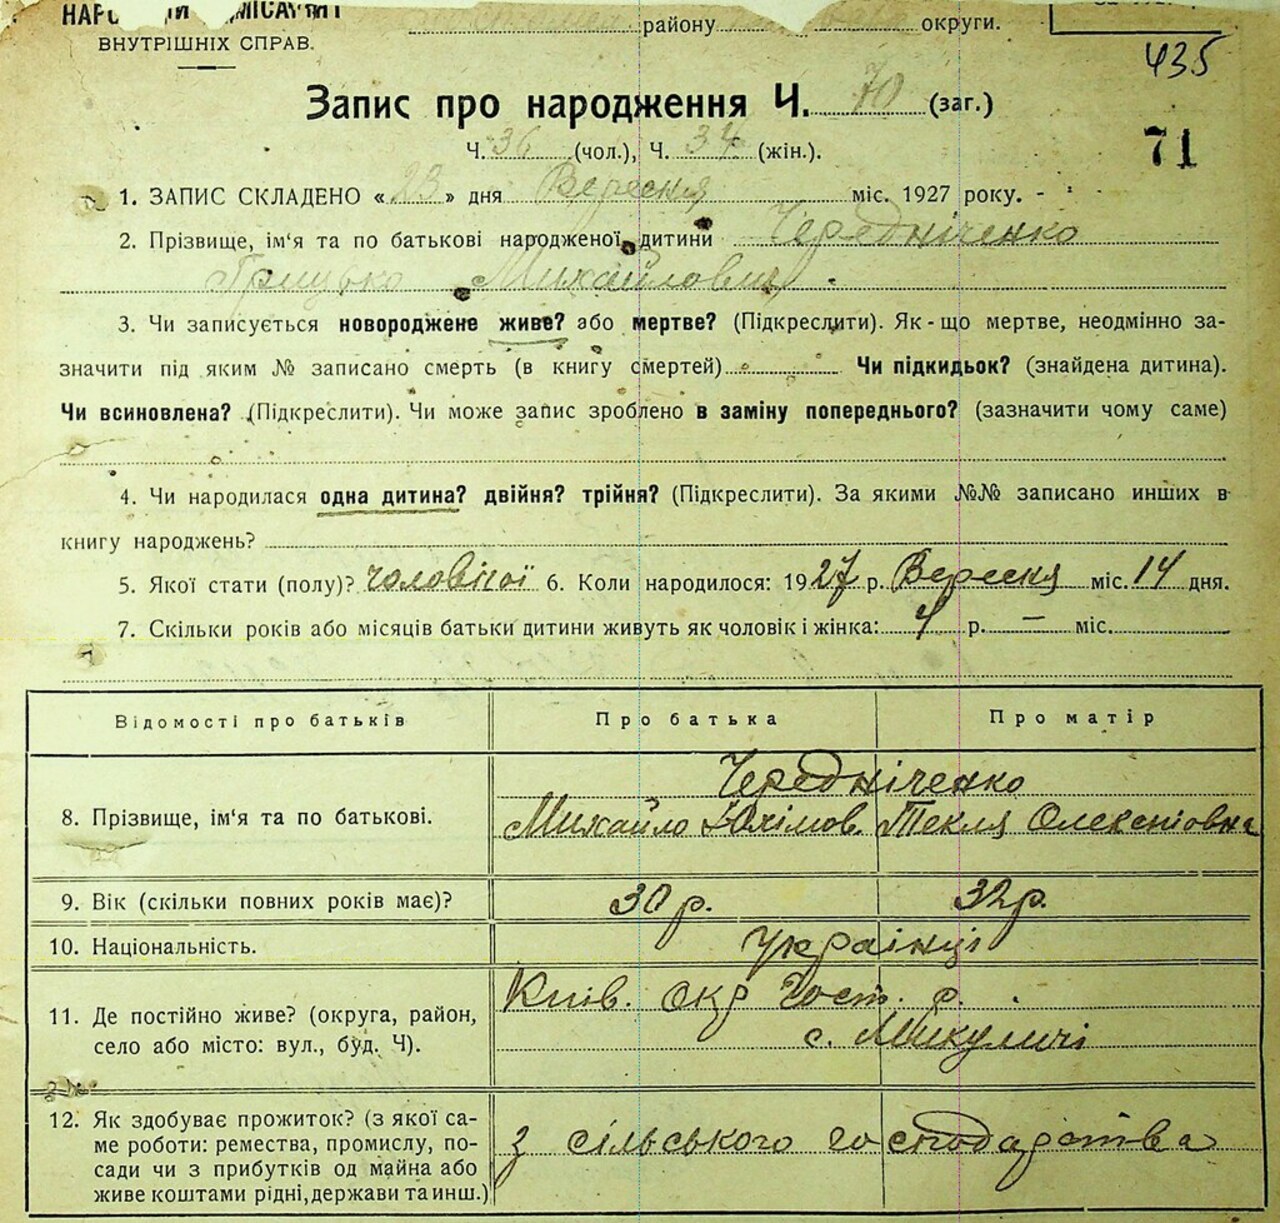 району округи.
ВНУТРІШНІХ СПРАВ.
435
Запис про народження Ч. 70 (заг.)
Ч. 36 (чол.), Ч. 34 (жін.).
71
1. ЗАПИС СКЛАДЕНО « 23 » дня Вересня міс. 1927 року.
2. Прізвище, ім‘я та по батькові народженої дитини Чередніченко
Грицько Михайлович.
3. Чи записується новороджене живе? або мертве? (Підкреслити). Як-що мертве, неодмінно за-
значити під яким № записано смерть (в книгу смертей) Чи підкидьок? (знайдена дитина).
Чи всиновлена? (Підкреслити). Чи може запис зроблено в заміну попереднього? (зазначити чому саме)
4. Чи народилася одна дитина? двійня? трійня? (Підкреслити). За якими №№ записано инших в
книгу народжень?
5. Якої стати (полу)? чоловічої 6. Коли народилося: 1927 р. Вересня міс. 14 дня.
7. Скільки років або місяців батьки дитини живуть як чоловік і жінка: 4 р. — міс.
Відомості про батьків Про батька Про матір
Чередніченко
8. Прізвище, ім‘я та по батькові. Михайло Юхімов. Текля Олексіовна
9. Вік (скільки повних років має)? 30 р. 32 р.
10. Національність. Українці
Київ. окр Гост. р.
11. Де постійно живе? (округа, район,
село або місто: вул., буд. Ч). с. Микуличі
12. Як здобуває прожиток? (з якої са-
ме роботи: ремества, промислу, по- з сільського господарства
сади чи з прибутків од майна або
живе коштами рідні, держави та инш.)